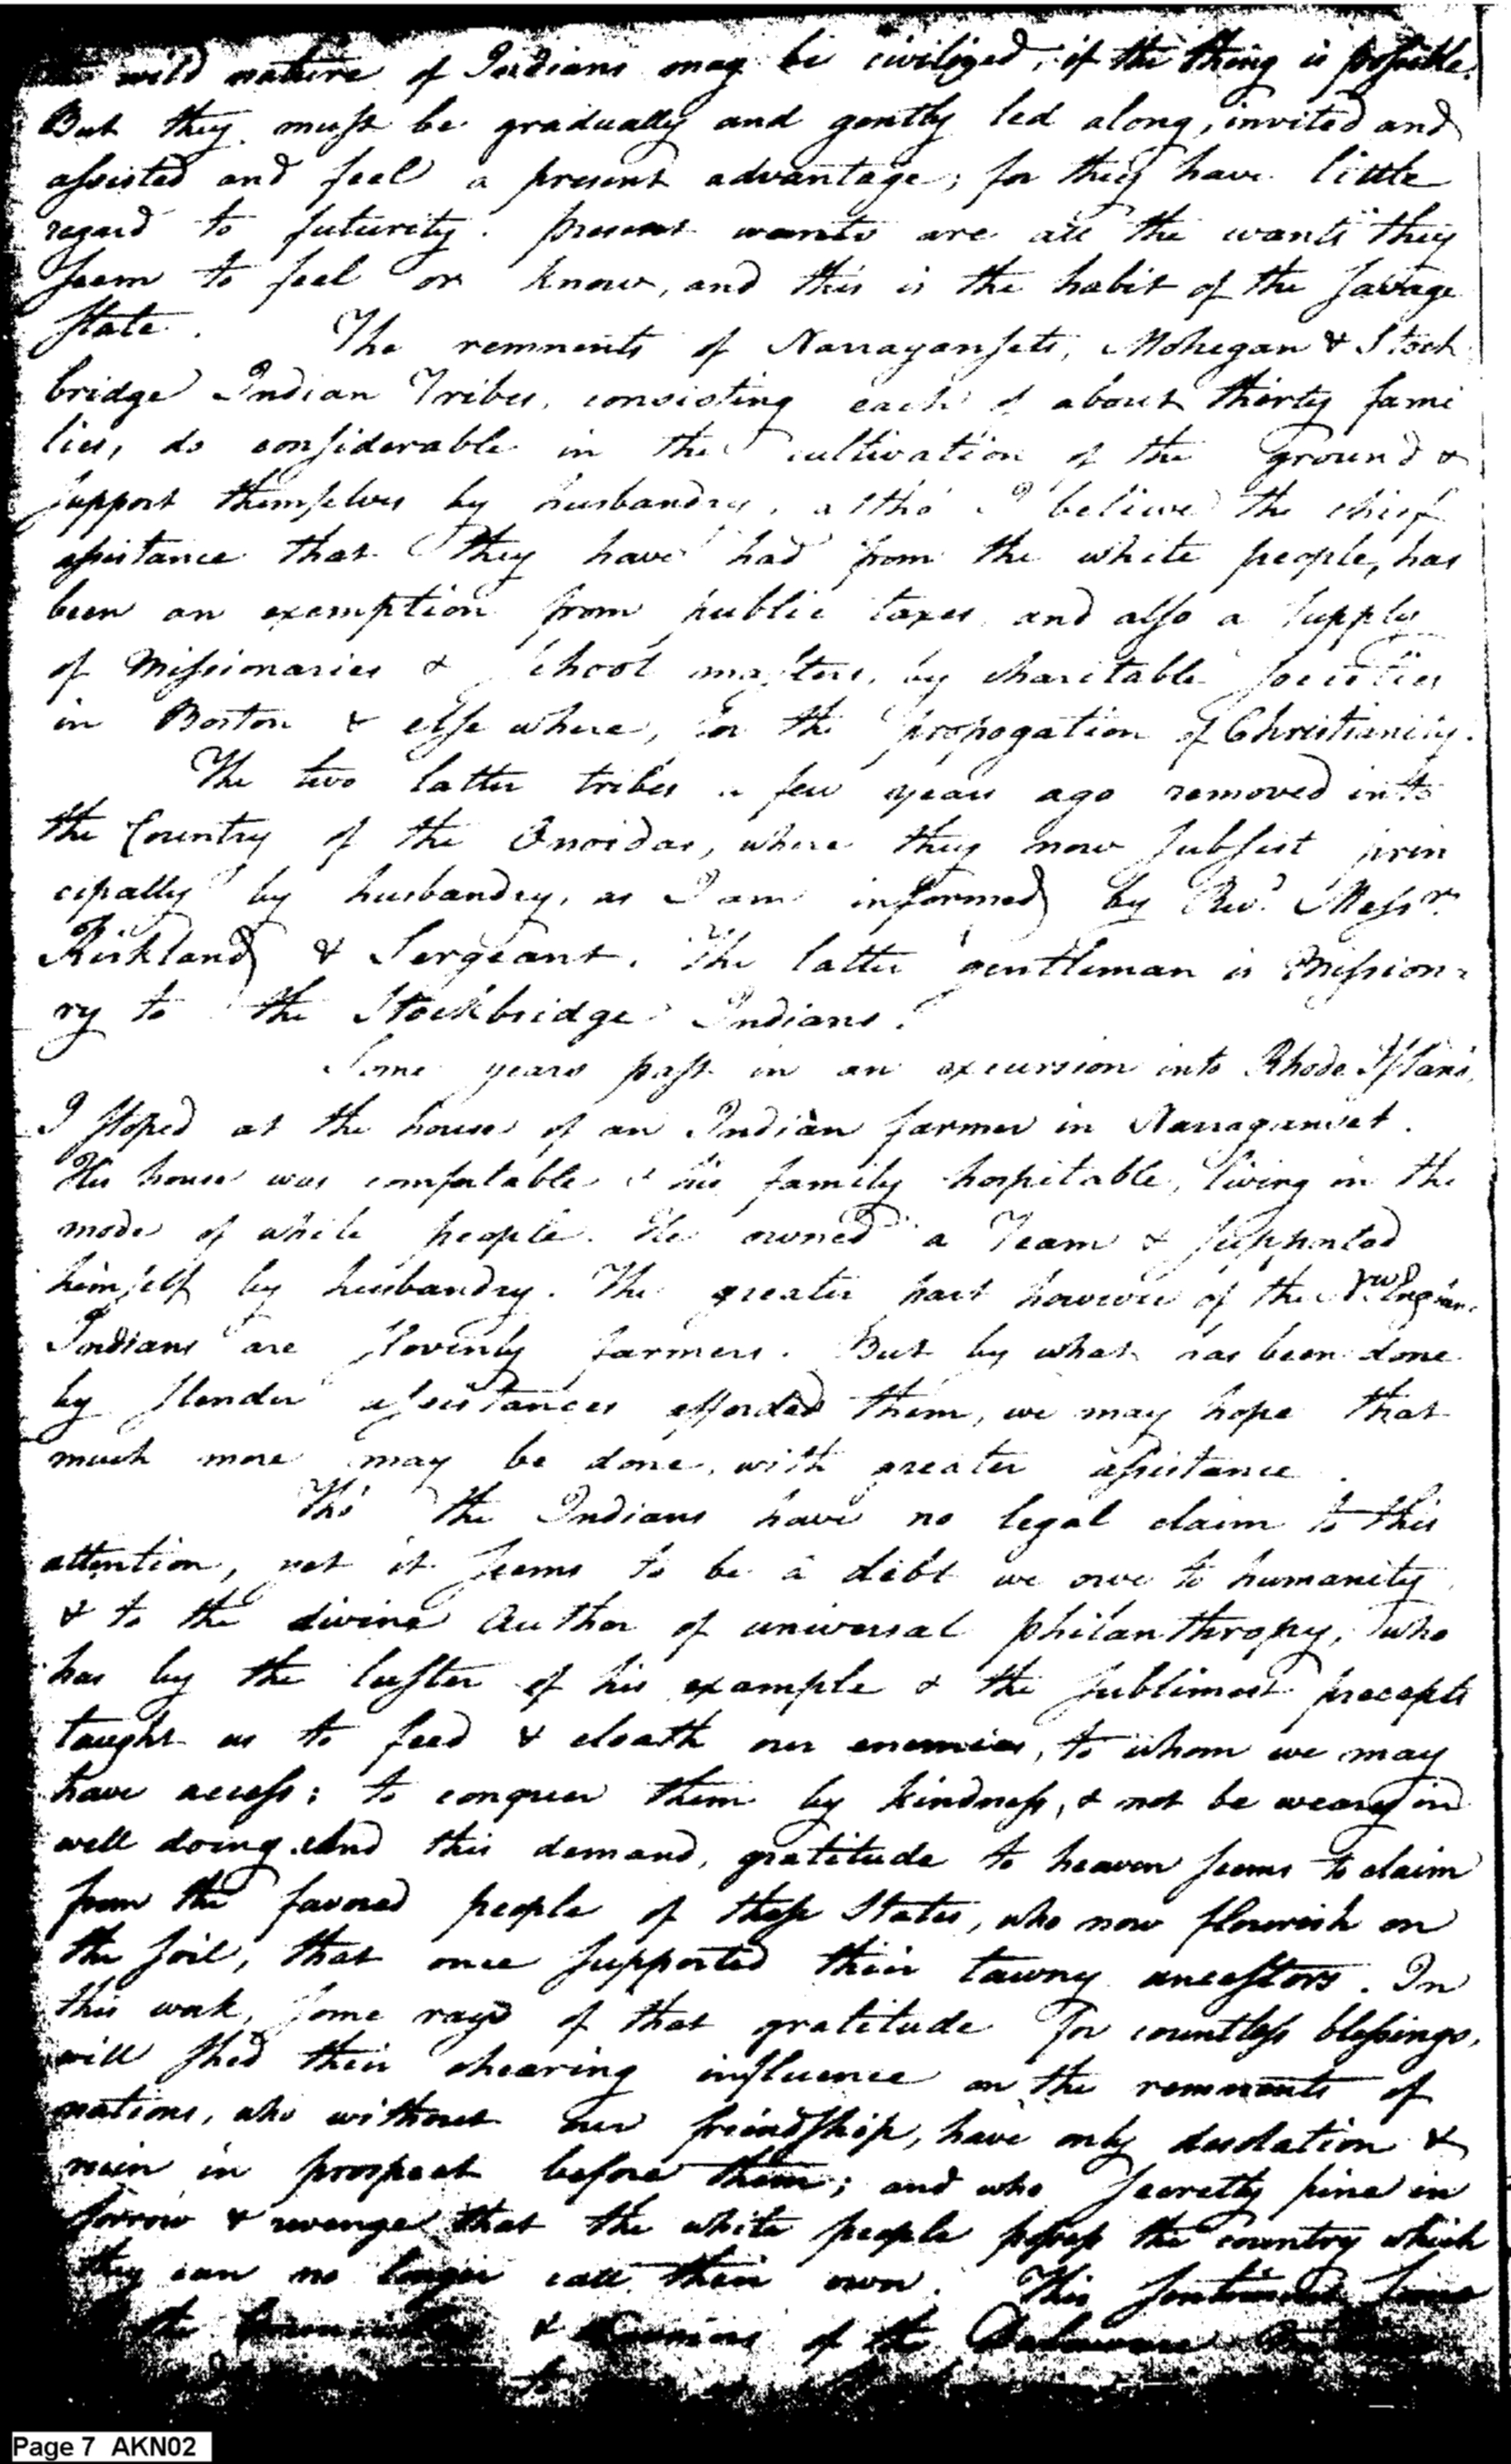 wild nature of Indians may be civilized, if the thing is possible.
But they must be gradually and gently led along, invited and
assisted and feel a present advantage; for they have little
regard to futurity. present wants are all the wants they
seem to feel or know, and this is the habit of the savage
state. The remnents of Narragansets, Mohegan & Stock
bridge Indian Tribes, consisting each of about thirty fami
lies, do considerable in the cultivation of the ground &
support themselves by husbandry, altho' I believe the chief
assistance that they have had from the white people, has
been an exemption from public taxes, and also a supply
of Missionaries & school masters, by charitable societies
in Boston & else where, for the propogation of Christianity.
The two latter tribes a few years ago removed into
the Country of the Oneidas, where they now subsist prin
cipally by husbandry, as I am informed by Revd. Messrs.
Kirkland & Sergeant. The latter gentleman is Mission=
ry to the Stockbridge Indians.
Some years past in an excursion into Rhode Island,
I stoped at the house of an Indian farmer in Narraganset.
His house was comfortable & his family hospitable, living in the
mode of white people. He owned a Team & supported
himself by husbandry. The greater part however of the New England
Indians are slovenly farmers. But by what has been done
by slender assistances afforded them, we may hope that
much more may be done, with greater assistance.
Tho' the Indians have no legal claim to this
attention, yet it seems to be a debt we owe to humanity
& to the divine Author of universal philanthropy, who
has by the luster of his example & the sublimest precepts
taught us to feed & cloath our enemies, to whom we may
have access; to conquer them by kindness, & not be weary in
well doing. And this demand, gratitude to heaven seems to claim
from the favored people of these States, who now flourish on
the soil, that once supported their tawny ancestors. In
this work, some rays of that gratitude for countless blessings,
will shed their chearing influence on the remnants of
nations, who without our friendship, have only desolation &
ruin in prospect before them; and who secretly pine in
sorrow & revenge that the white people possess the country which
they can no longer call their own. This sentiment
the & of the Delaware
Page 7 AKN02